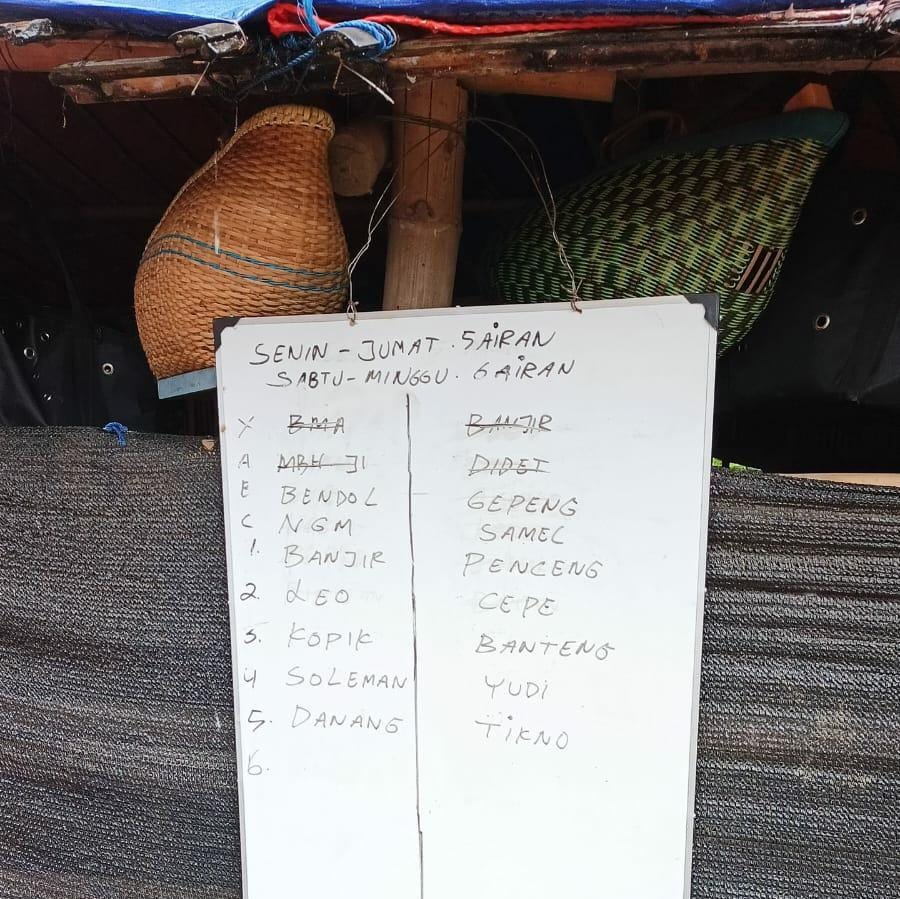 SENIN - JUMAT . 5 AIRAN
SABTU - MINGGU . 6 AIRAN
X BMA BANJIR
A MBH JI DIDET
E BENDOL GEPENG
C NGM SAMEL
1. BANJIR PENCENG
2 LEO CEPE
3. KOPIK BANTENG
4 SOLEMAN YUDI
5. DANANG TIKNO
6.